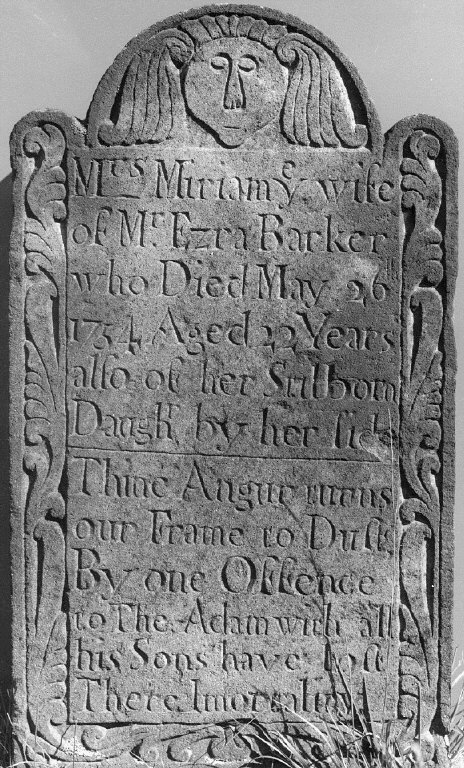 Mrs Miriam ye wife
of Mr Ezra Barker
who Died May 26th
1754 Aged 22 Years
alſo of her Stilborn
Daughr by her ſide
Thine Angur turns
our Frame to Duſt
By one Offence
to The Adam with all
his Sons have loſt
There Imortality